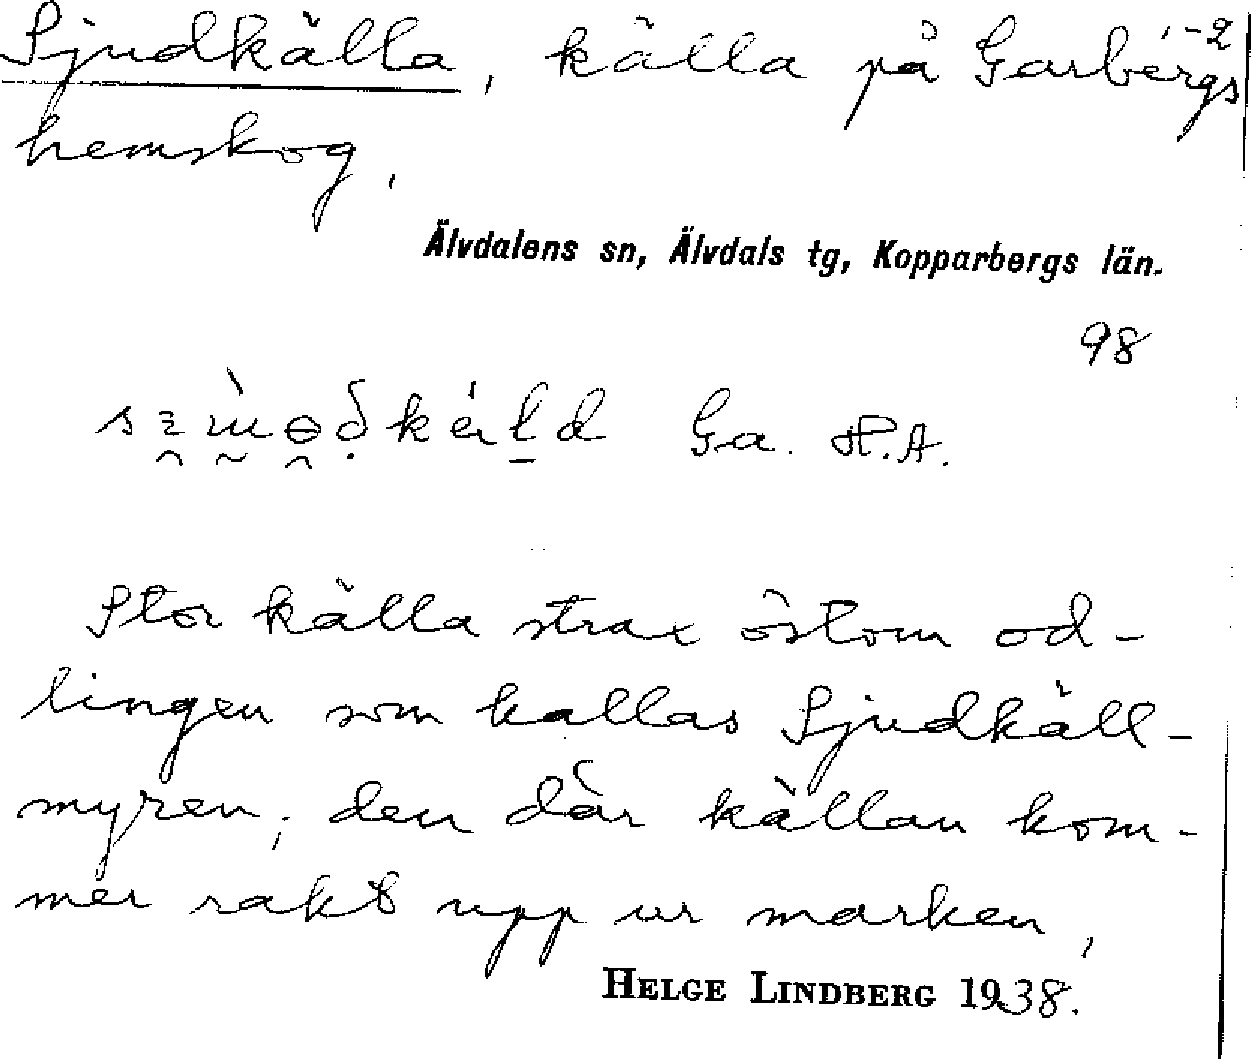 Sjudkälla, källa på Garbergs -2
hemskog,
Älvdalens sn, Älvdals tg, Kopparbergs län.
98
Ga. H.A.
Stor källa strax östom od-
lingen som kallas Sjudkäll-
myren, den där källan kom-
mer rakt upp ur marken,
HELGE LINDBERG 1938.